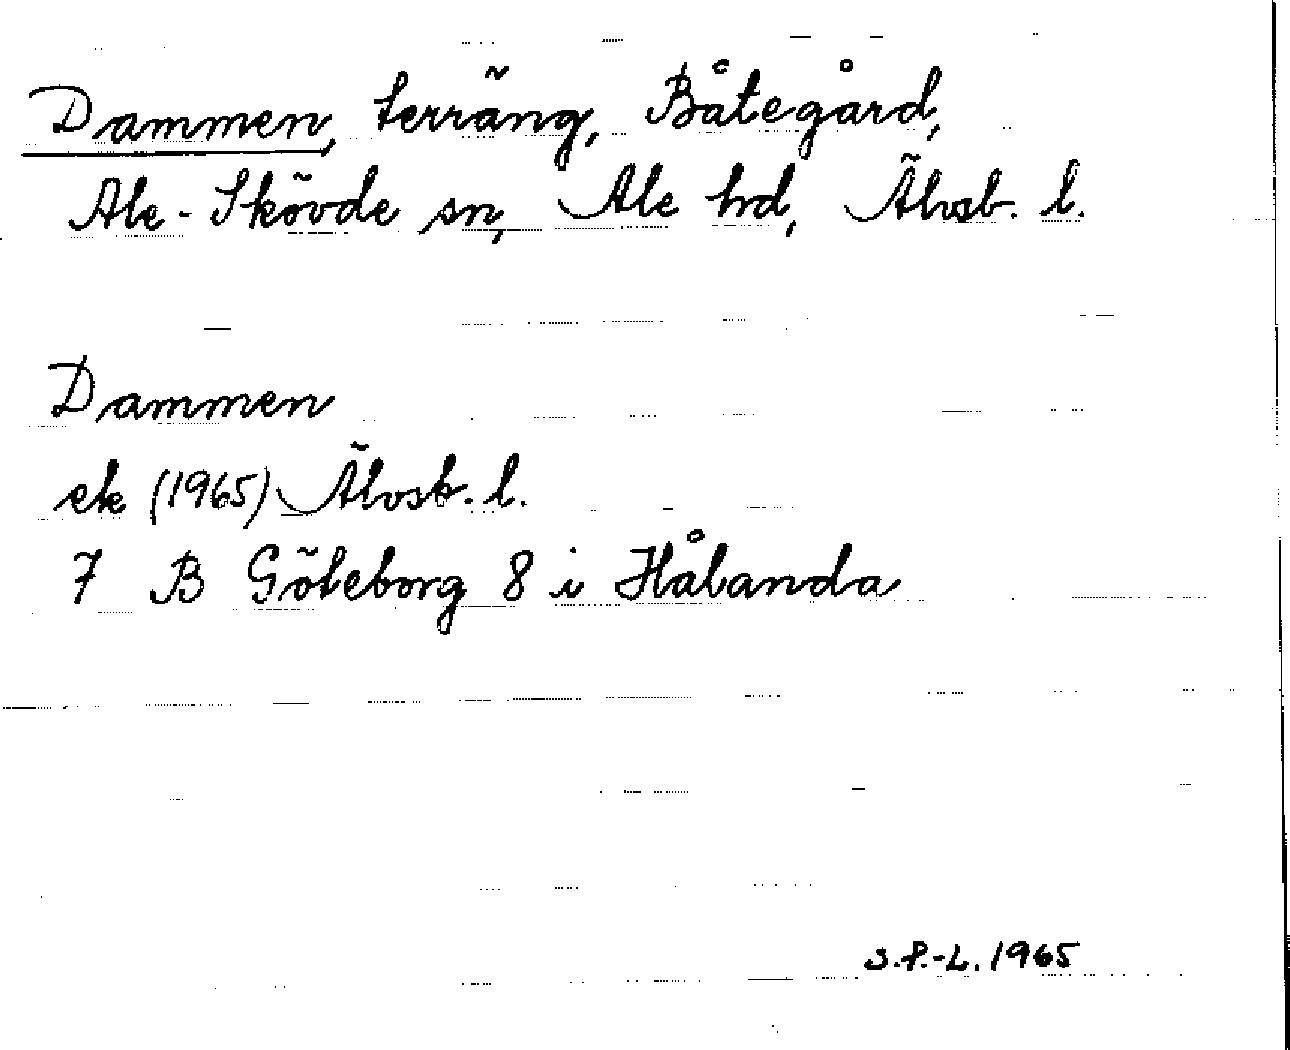 Dammen, terräng, Båtegård,
Ale-Skövde sn, Ale hd, Älvsb. l.
Dammen
ek (1965) Älvsb. l.
7 B Göteborg 8 i Hålanda
S.P.-L. 1965